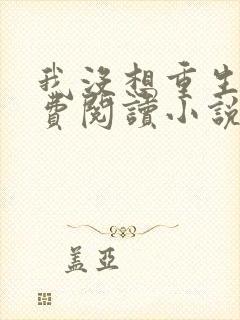 我沒想重生
費閱讀小說
蓋亞